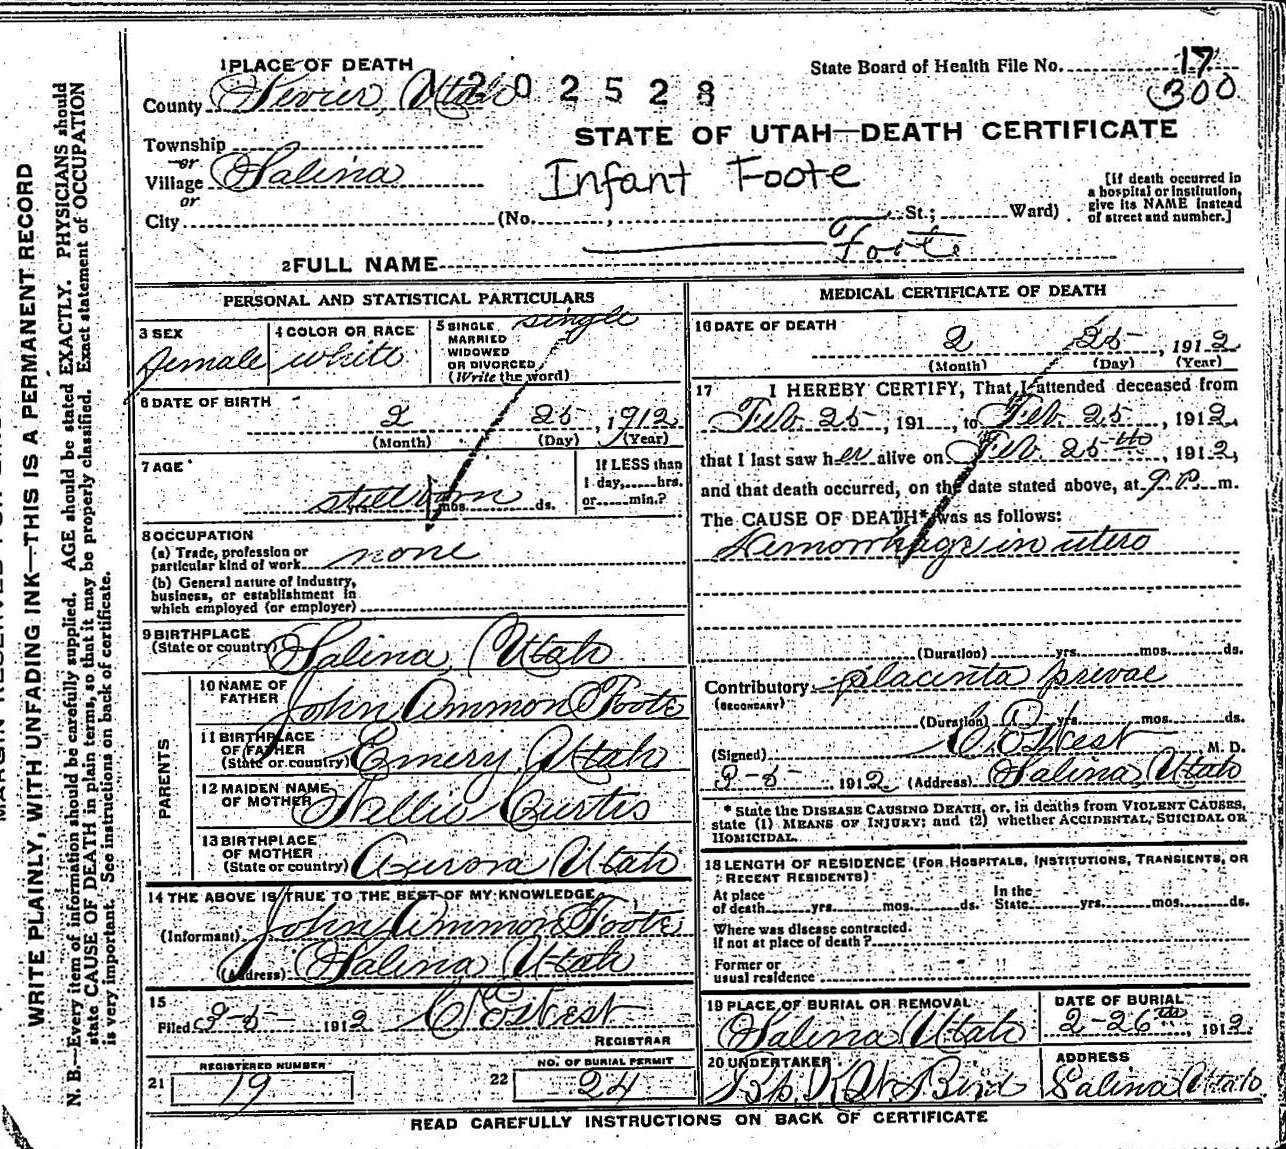 WRITE PLAINLY, WITH UNFADING INK—THIS IS A PERMANENT RECORD
N. B.—Every item of information should be carefully supplied. AGE should be stated EXACTLY. PHYSICIANS should
state CAUSE OF DEATH in plain terms, so that it may be properly classified. Exact statement of OCCUPATION
is very important. See instructions on back of certificate.
1 PLACE OF DEATH
State Board of Health File No. 17
300
County Sevier, Utah
202528
STATE OF UTAH—DEATH CERTIFICATE
Township
or
Village Salina
or
City
Infant Foote
(No. , St.; Ward)
[If death occurred in
a hospital or institution,
give its NAME instead
of street and number.]
2 FULL NAME Foote
PERSONAL AND STATISTICAL PARTICULARS
3 SEX
female
4 COLOR OR RACE
white
5 SINGLE
MARRIED
WIDOWED
OR DIVORCED
(Write the word)
single
6 DATE OF BIRTH
2 25, 1912
(Month) (Day) (Year)
7 AGE
stillborn
yrs. mos. ds.
If LESS than
1 day, hrs.
or min.?
8 OCCUPATION
(a) Trade, profession or
particular kind of work none
(b) General nature of Industry,
business, or establishment in
which employed (or employer)
9 BIRTHPLACE
(State or country) Salina, Utah
PARENTS
10 NAME OF
FATHER John Ammon Foote
11 BIRTHPLACE
OF FATHER
(State or country) Emery, Utah
12 MAIDEN NAME
OF MOTHER Nellie Curtis
13 BIRTHPLACE
OF MOTHER
(State or country) Aurora Utah
14 THE ABOVE IS TRUE TO THE BEST OF MY KNOWLEDGE
(Informant) John Ammon Foote
(Address) Salina Utah
15
Filed 3-5- 1912 C E West
REGISTRAR
21
REGISTERED NUMBER
19
22
NO. OF BURIAL PERMIT
24
MEDICAL CERTIFICATE OF DEATH
16 DATE OF DEATH
2 25, 1912
(Month) (Day) (Year)
17 I HEREBY CERTIFY, That I attended deceased from
Feb. 25, 191 , to Feb. 25, 1912,
that I last saw her alive on Feb. 25th, 1912,
and that death occurred, on the date stated above, at 9 P. m.
The CAUSE OF DEATH* was as follows:
Hemorrhage in utero
(Duration) yrs. mos. ds.
Contributory placinta prevae
(SECONDARY)
(Duration) yrs. mos. ds.
(Signed) C E West, M. D.
3-5- 1912 (Address) Salina, Utah
* State the DISEASE CAUSING DEATH, or, in deaths from VIOLENT CAUSES,
state (1) MEANS OF INJURY; and (2) whether ACCIDENTAL, SUICIDAL OR
HOMICIDAL.
18 LENGTH OF RESIDENCE (FOR HOSPITALS, INSTITUTIONS, TRANSIENTS, OR
RECENT RESIDENTS)
At place
of death yrs. mos. ds.
In the
State yrs. mos. ds.
Where was disease contracted.
If not at place of death?
Former or
usual residence
19 PLACE OF BURIAL OR REMOVAL
Salina Utah
DATE OF BURIAL
2-26th, 1912
20 UNDERTAKER
ADDRESS
Salina Utah
READ CAREFULLY INSTRUCTIONS ON BACK OF CERTIFICATE